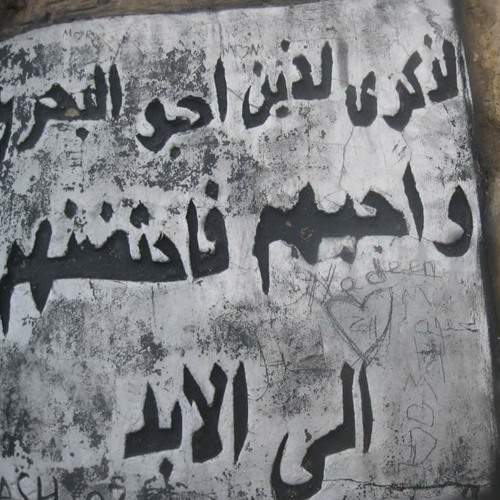 لذكرى لذين احبو البحر
واحبهم فاحتضنهم
Nadeen
الى الابد